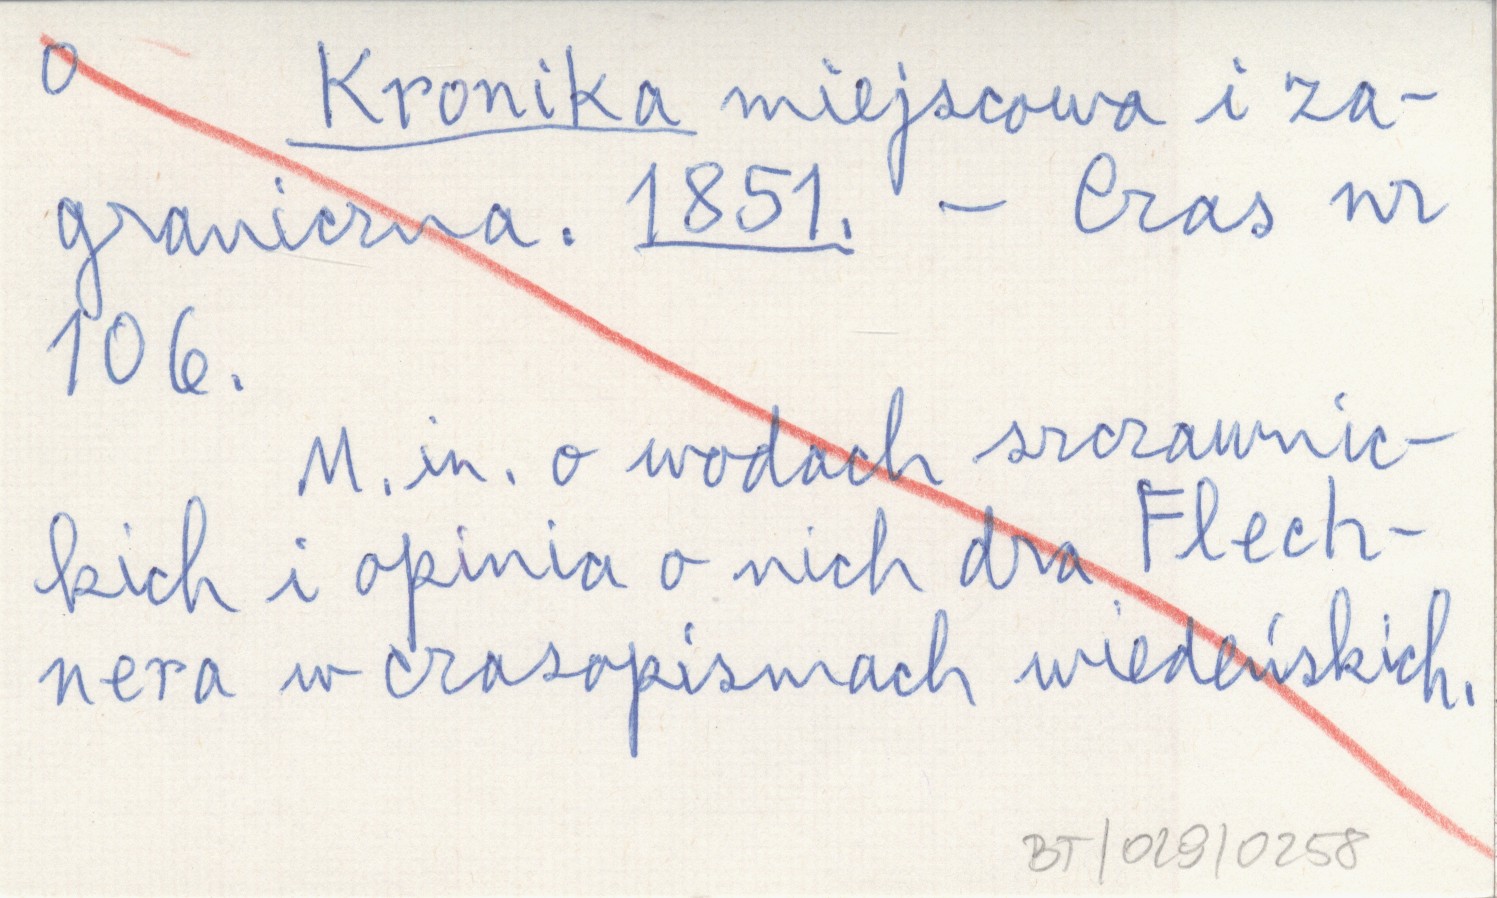 o Kronika miejscowa i za-
graniczna. 1851. - Czas nr
106.
M. in. o wodach szczawnic-
kich i opinia o nich dra Flech-
nera w czasopismach wiedeńskich.
BT/029/0258